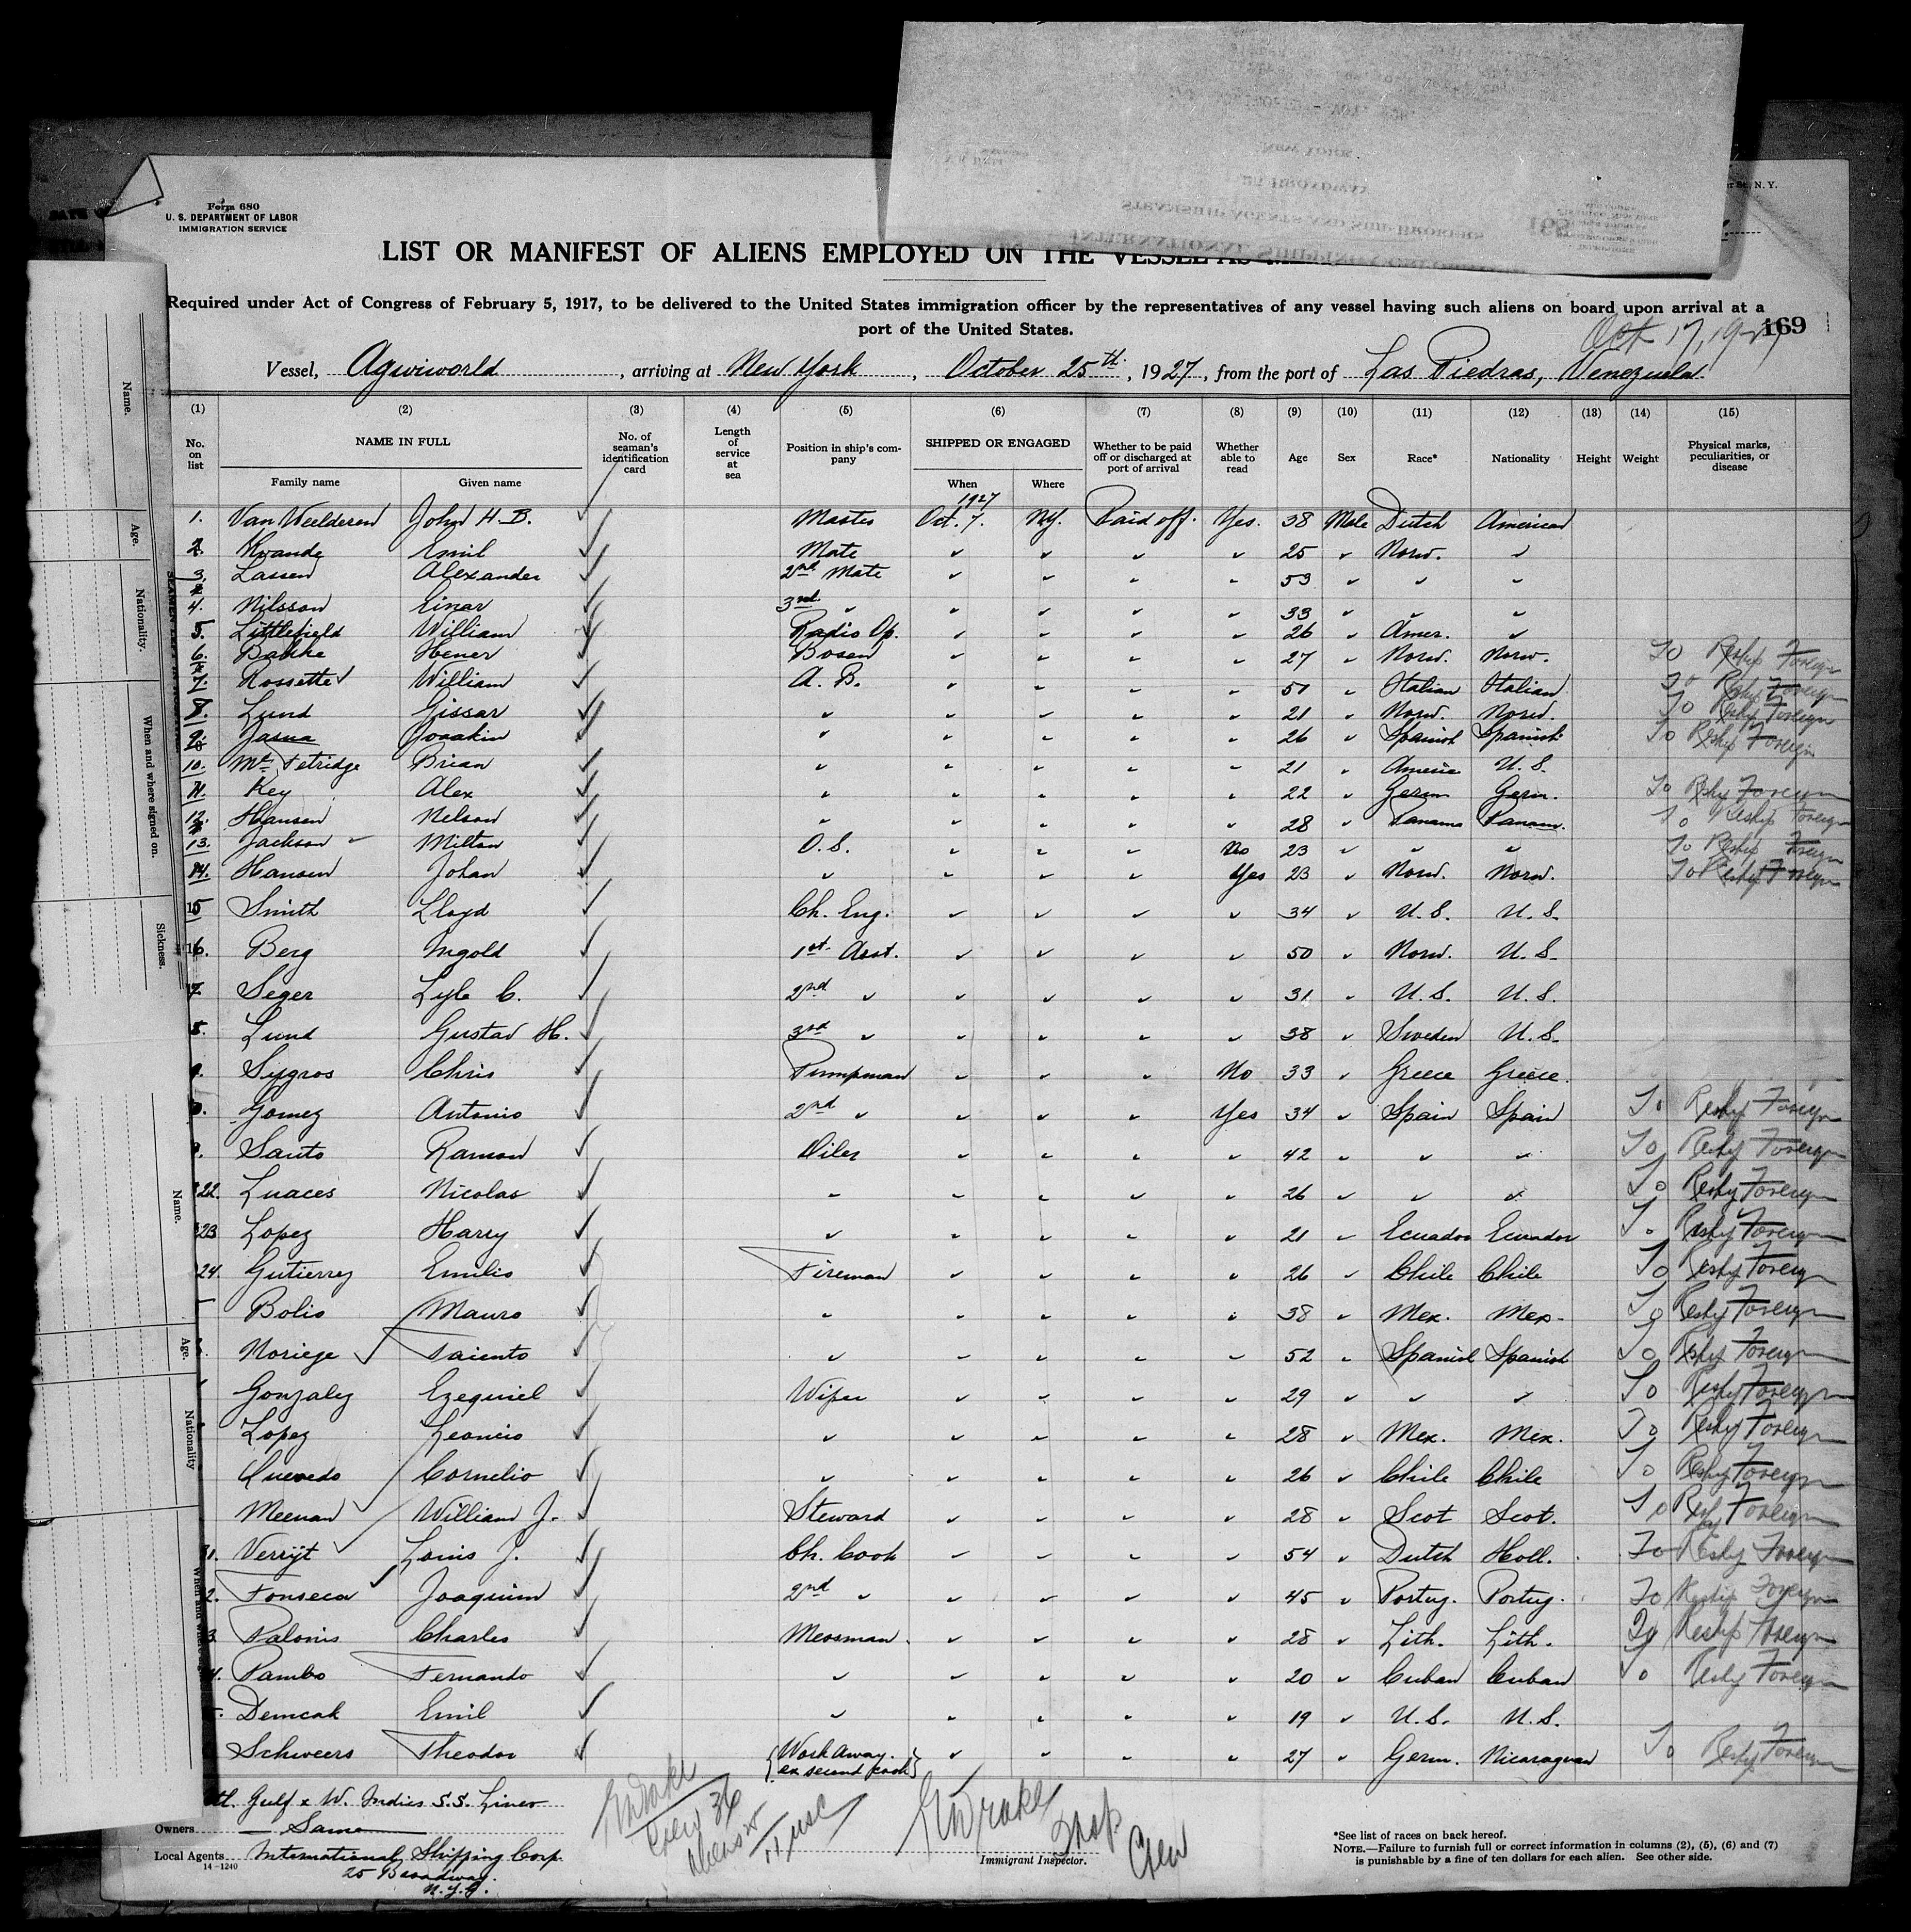 Form 680
U. S. DEPARTMENT OF LABOR
IMMIGRATION SERVICE
LIST OR MANIFEST OF ALIENS EMPLOYED ON THE VESSEL AS
Required under Act of Congress of February 5, 1917, to be delivered to the United States immigration officer by the representatives of any vessel having such aliens on board upon arrival at a
port of the United States.
Oct 17, 19
169
Vessel, Agwiworld, arriving at New York, October 25th, 1927, from the port of Las Piedras, Venezuela
(1) (2) (3) (4) (5) (6) (7) (8) (9) (10) (11) (12) (13) (14) (15)
No. on list NAME IN FULL No. of seaman's identification card Length of service at sea Position in ship's company SHIPPED OR ENGAGED Whether to be paid off or discharged at port of arrival Whether able to read Age Sex Race* Nationality Height Weight Physical marks, peculiarities, or disease
Family name Given name When Where
1927
1. Van Weelderen John H. B. ✓ Master Oct. 7. N.Y. Paid off. Yes. 38 Male Dutch American
2. Kvande Emil ✓ Mate ✓ ✓ ✓ ✓ 25 ✓ Norw. ✓
3. Lassen Alexander ✓ 2nd Mate ✓ ✓ ✓ ✓ 53 ✓ ✓ ✓
4. Nilsson Einar ✓ 3rd ✓ ✓ ✓ ✓ ✓ 33 ✓ ✓ ✓
5. Littlefield William ✓ Radio Op. ✓ ✓ ✓ ✓ 26 ✓ Amer. ✓
6. Bakke Hener ✓ Bosen ✓ ✓ ✓ ✓ 27 ✓ Norw. Norw. To Reship Foreign
7. Rossette ✓ William ✓ A. B. ✓ ✓ ✓ ✓ 51 ✓ Italian Italian To Reship Foreign
8. Lund Gissar ✓ ✓ ✓ ✓ ✓ ✓ 21 ✓ Norw. Norw. To Reship Foreign
9. Jasua Joaakin ✓ ✓ ✓ ✓ ✓ ✓ 26 ✓ Spanish Spanish To Reship Foreign
10. Mc Fetridge Brian ✓ ✓ ✓ ✓ ✓ ✓ 21 ✓ Americ U. S.
11. Key Alex ✓ ✓ ✓ ✓ ✓ ✓ 22 ✓ Germ Germ. To Reship Foreign
12. Hansen Nelson ✓ ✓ ✓ ✓ ✓ ✓ 28 ✓ Panama Panam. To Reship Foreign
13. Jackson ✓ Milton ✓ O. S. ✓ ✓ ✓ No 23 ✓ ✓ ✓ To Reship Foreign
14. Hansen Johan ✓ ✓ ✓ ✓ ✓ Yes 23 ✓ Norw. Norw. To Reship Foreign
15 Smith Lloyd ✓ Ch. Eng. ✓ ✓ ✓ ✓ 34 ✓ U. S. U. S.
16. Berg Ingold ✓ 1st Asst. ✓ ✓ ✓ ✓ 50 ✓ Norw. U. S.
7. Seger Lyle C. ✓ 2nd ✓ ✓ ✓ ✓ ✓ 31 ✓ U. S. U. S.
8. Lund Gustav H. ✓ 3rd ✓ ✓ ✓ ✓ ✓ 38 ✓ Sweden U. S.
Sygros Chris ✓ Pumpman ✓ ✓ ✓ No 33 ✓ Greece Greece.
Gomez Antonio ✓ 2nd ✓ ✓ ✓ ✓ Yes 34 ✓ Spain Spain To Reship Foreign
Santo Ramon ✓ Oiler ✓ ✓ ✓ ✓ 42 ✓ ✓ ✓ To Reship Foreign
22. Luaces Nicolas ✓ ✓ ✓ ✓ ✓ ✓ 26 ✓ ✓ ✓ To Reship Foreign
23 Lopez Harry ✓ ✓ ✓ ✓ ✓ ✓ 21 ✓ Ecuador Ecuador To Reship Foreign
24. Gutierrez Emilio ✓ Fireman ✓ ✓ ✓ ✓ 26 ✓ Chile Chile To Reship Foreign
Bolio Mauro ✓ ✓ ✓ ✓ ✓ ✓ 38 ✓ Mex. Mex. To Reship Foreign
Noriege ✓ Taiento ✓ ✓ ✓ ✓ ✓ ✓ 52 ✓ Spanish Spanish To Reship Foreign
Gonzalez Ezequiel ✓ Wiper ✓ ✓ ✓ ✓ 29 ✓ ✓ ✓ To Reship Foreign
Lopez Leoncio ✓ ✓ ✓ ✓ ✓ ✓ 28 ✓ Mex. Mex. To Reship Foreign
Quevedo Cornelio ✓ ✓ ✓ ✓ ✓ ✓ 26 ✓ Chile Chile To Reship Foreign
Meenan ✓ William J. ✓ Steward ✓ ✓ ✓ ✓ 28 ✓ Scot Scot. To Reship Foreign
31. Verrijt ✓ Louis J. ✓ Ch. Cook ✓ ✓ ✓ ✓ 54 ✓ Dutch Holl. To Reship Foreign
2. Fonseca ✓ Joaquim ✓ 2nd ✓ ✓ ✓ ✓ ✓ 45 ✓ Portug. Portug. To Reship Foreign
3. Palonis Charles ✓ Messman. ✓ ✓ ✓ ✓ 28 ✓ Lith. Lith. To Reship Foreign
4. Pambo Fernando ✓ ✓ ✓ ✓ ✓ ✓ 20 ✓ Cuban Cuban To Reship Foreign
Demcak Emil ✓ ✓ ✓ ✓ ✓ ✓ 19 ✓ U. S. U. S.
Schweers Theodor ✓ {Work Away. ex second cook} ✓ ✓ ✓ ✓ 27 ✓ Germ. Nicaraguan To Reship Foreign
Atl. Gulf & W. Indies S.S. Lines
Owners Same
Local Agents International Shipping Corp.
25 Broadway.
N.Y.C.
14-1240
Crew 36
Aliens 25
11 USC
Drake
Insp.
Crew
Immigrant Inspector.
*See list of races on back hereof.
NOTE.—Failure to furnish full or correct information in columns (2), (5), (6) and (7)
is punishable by a fine of ten dollars for each alien. See other side.
Name.
Age.
Nationality.
When and where signed on.
Sickness.
Name.
Age.
Nationality